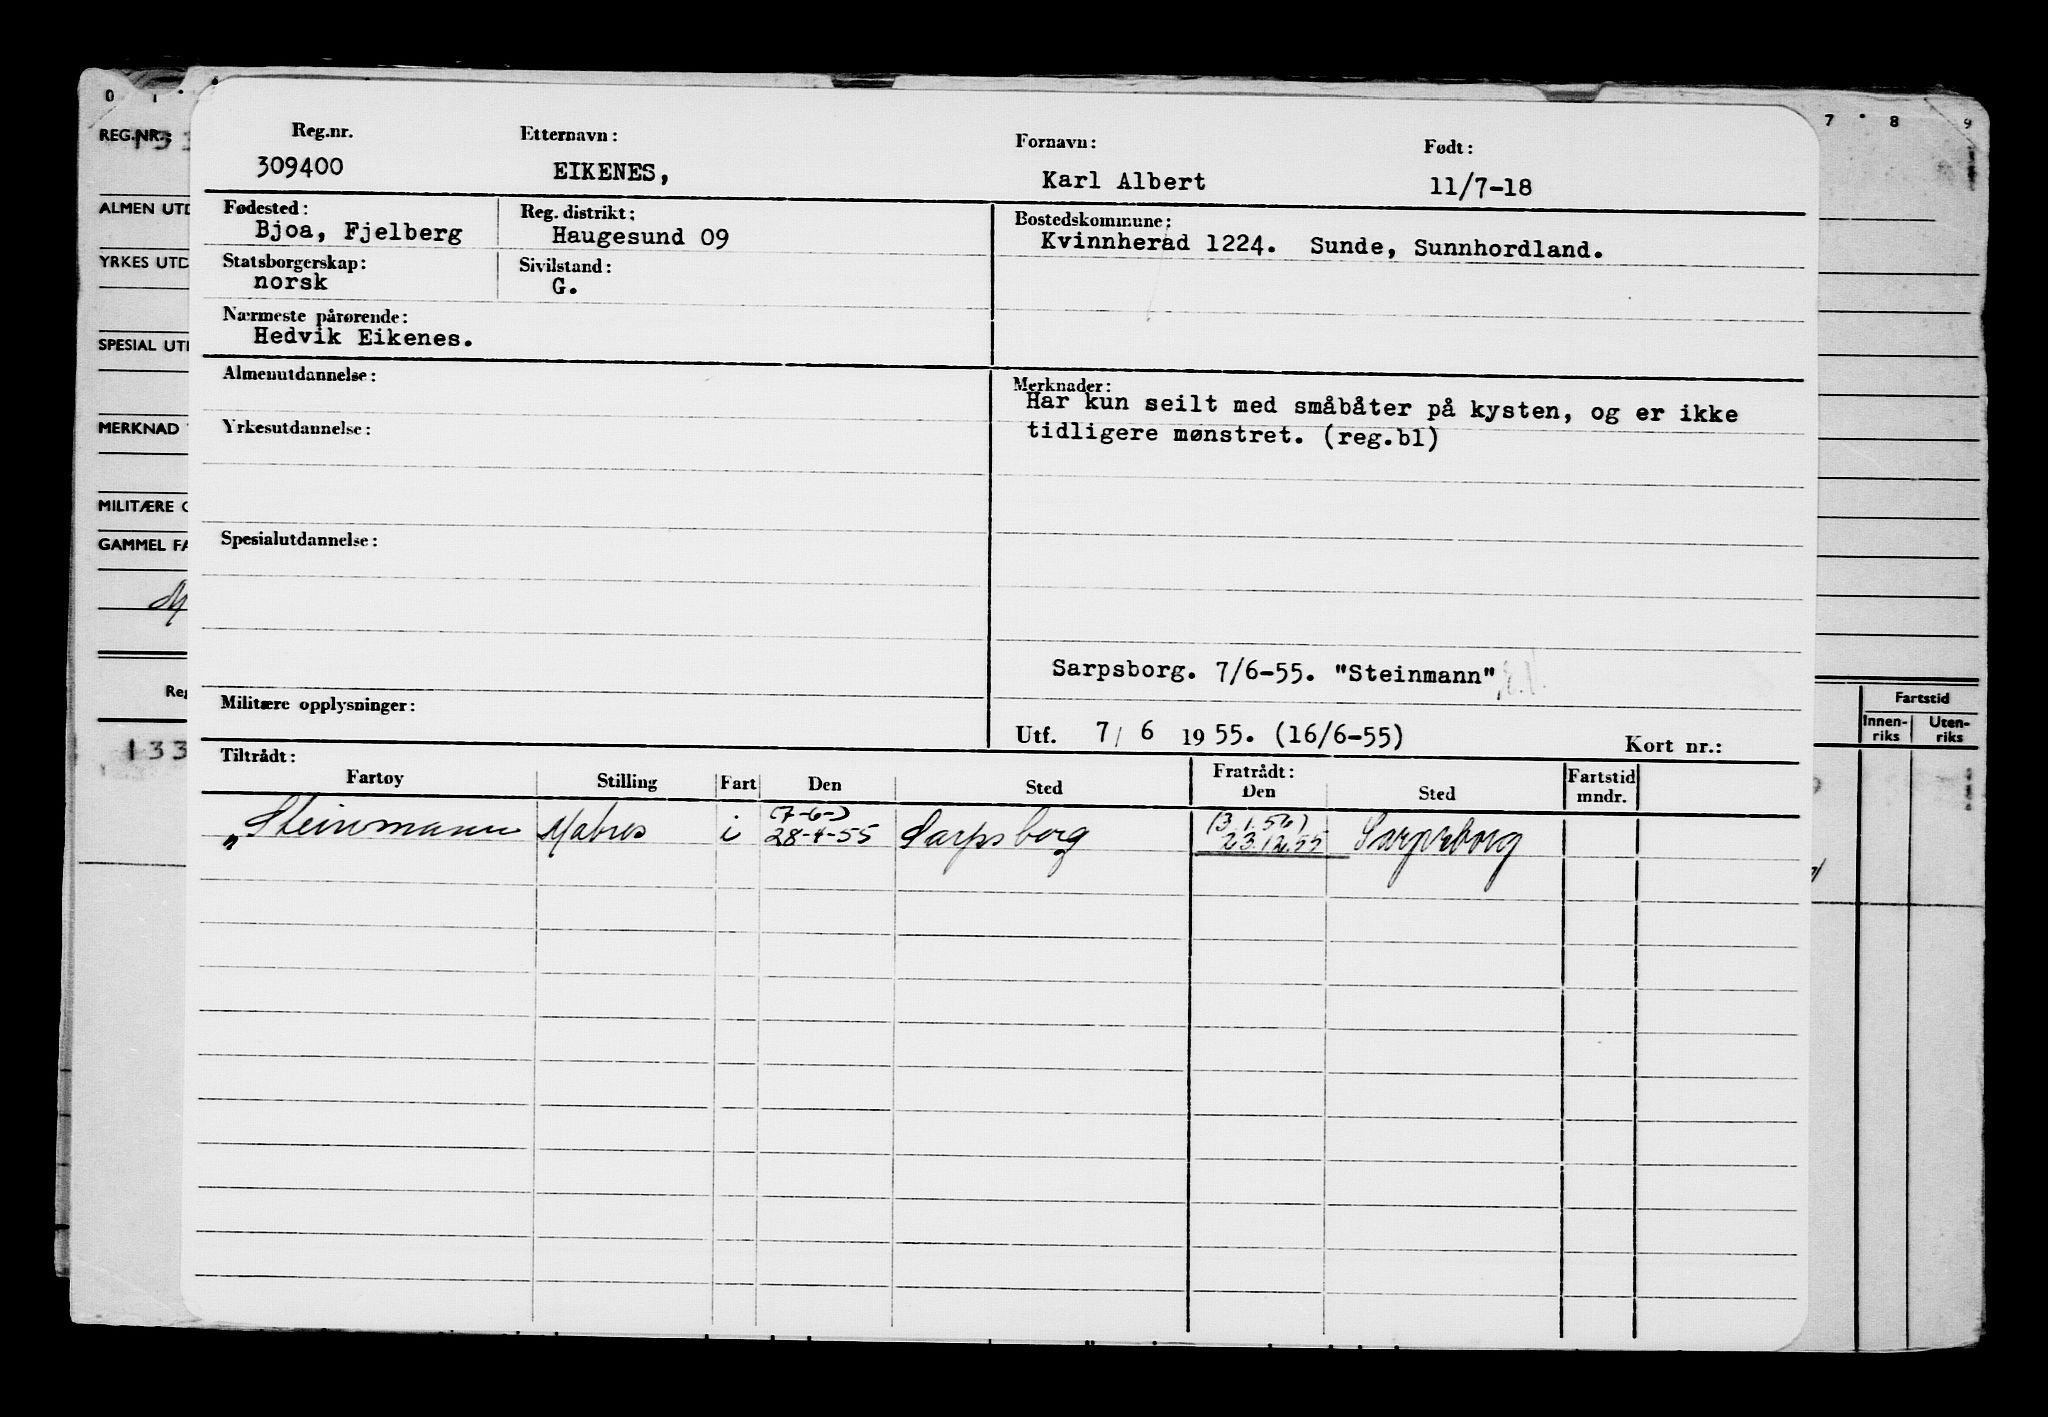 0 1
7 8 9
REG.NR.:
ALMEN UTD
YRKES UTD
SPESIAL UT
MERKNAD
MILITÆRE
GAMMEL FA
Reg
133
Fartstid
Innen-riks
Uten-riks
Reg.nr. Etternavn: Fornavn: Født:
309400 EIKENES, Karl Albert 11/7-18
Fødested: Reg. distrikt: Bostedskommune:
Bjoa, Fjelberg Haugesund 09 Kvinnherad 1224. Sunde, Sunnhordland.
Statsborgerskap: Sivilstand:
norsk G.
Nærmeste pårørende:
Hedvik Eikenes.
Almenutdannelse: Merknader:
Har kun seilt med småbåter på kysten, og er ikke
Yrkesutdannelse: tidligere mønstret. (reg.bl)
Spesialutdannelse:
Sarpsborg. 7/6-55. "Steinmann"
Militære opplysninger:
Utf. 7/ 6 1955. (16/6-55) Kort nr.:
Tiltrådt: Fratrådt:
Fartøy Stilling Fart Den Sted Den Sted Fartstid mndr.
(7-6-) (3.1.56)
„Steinmann Matros i 28-4-55 Sarpsborg 23.12.55 Sarpsborg